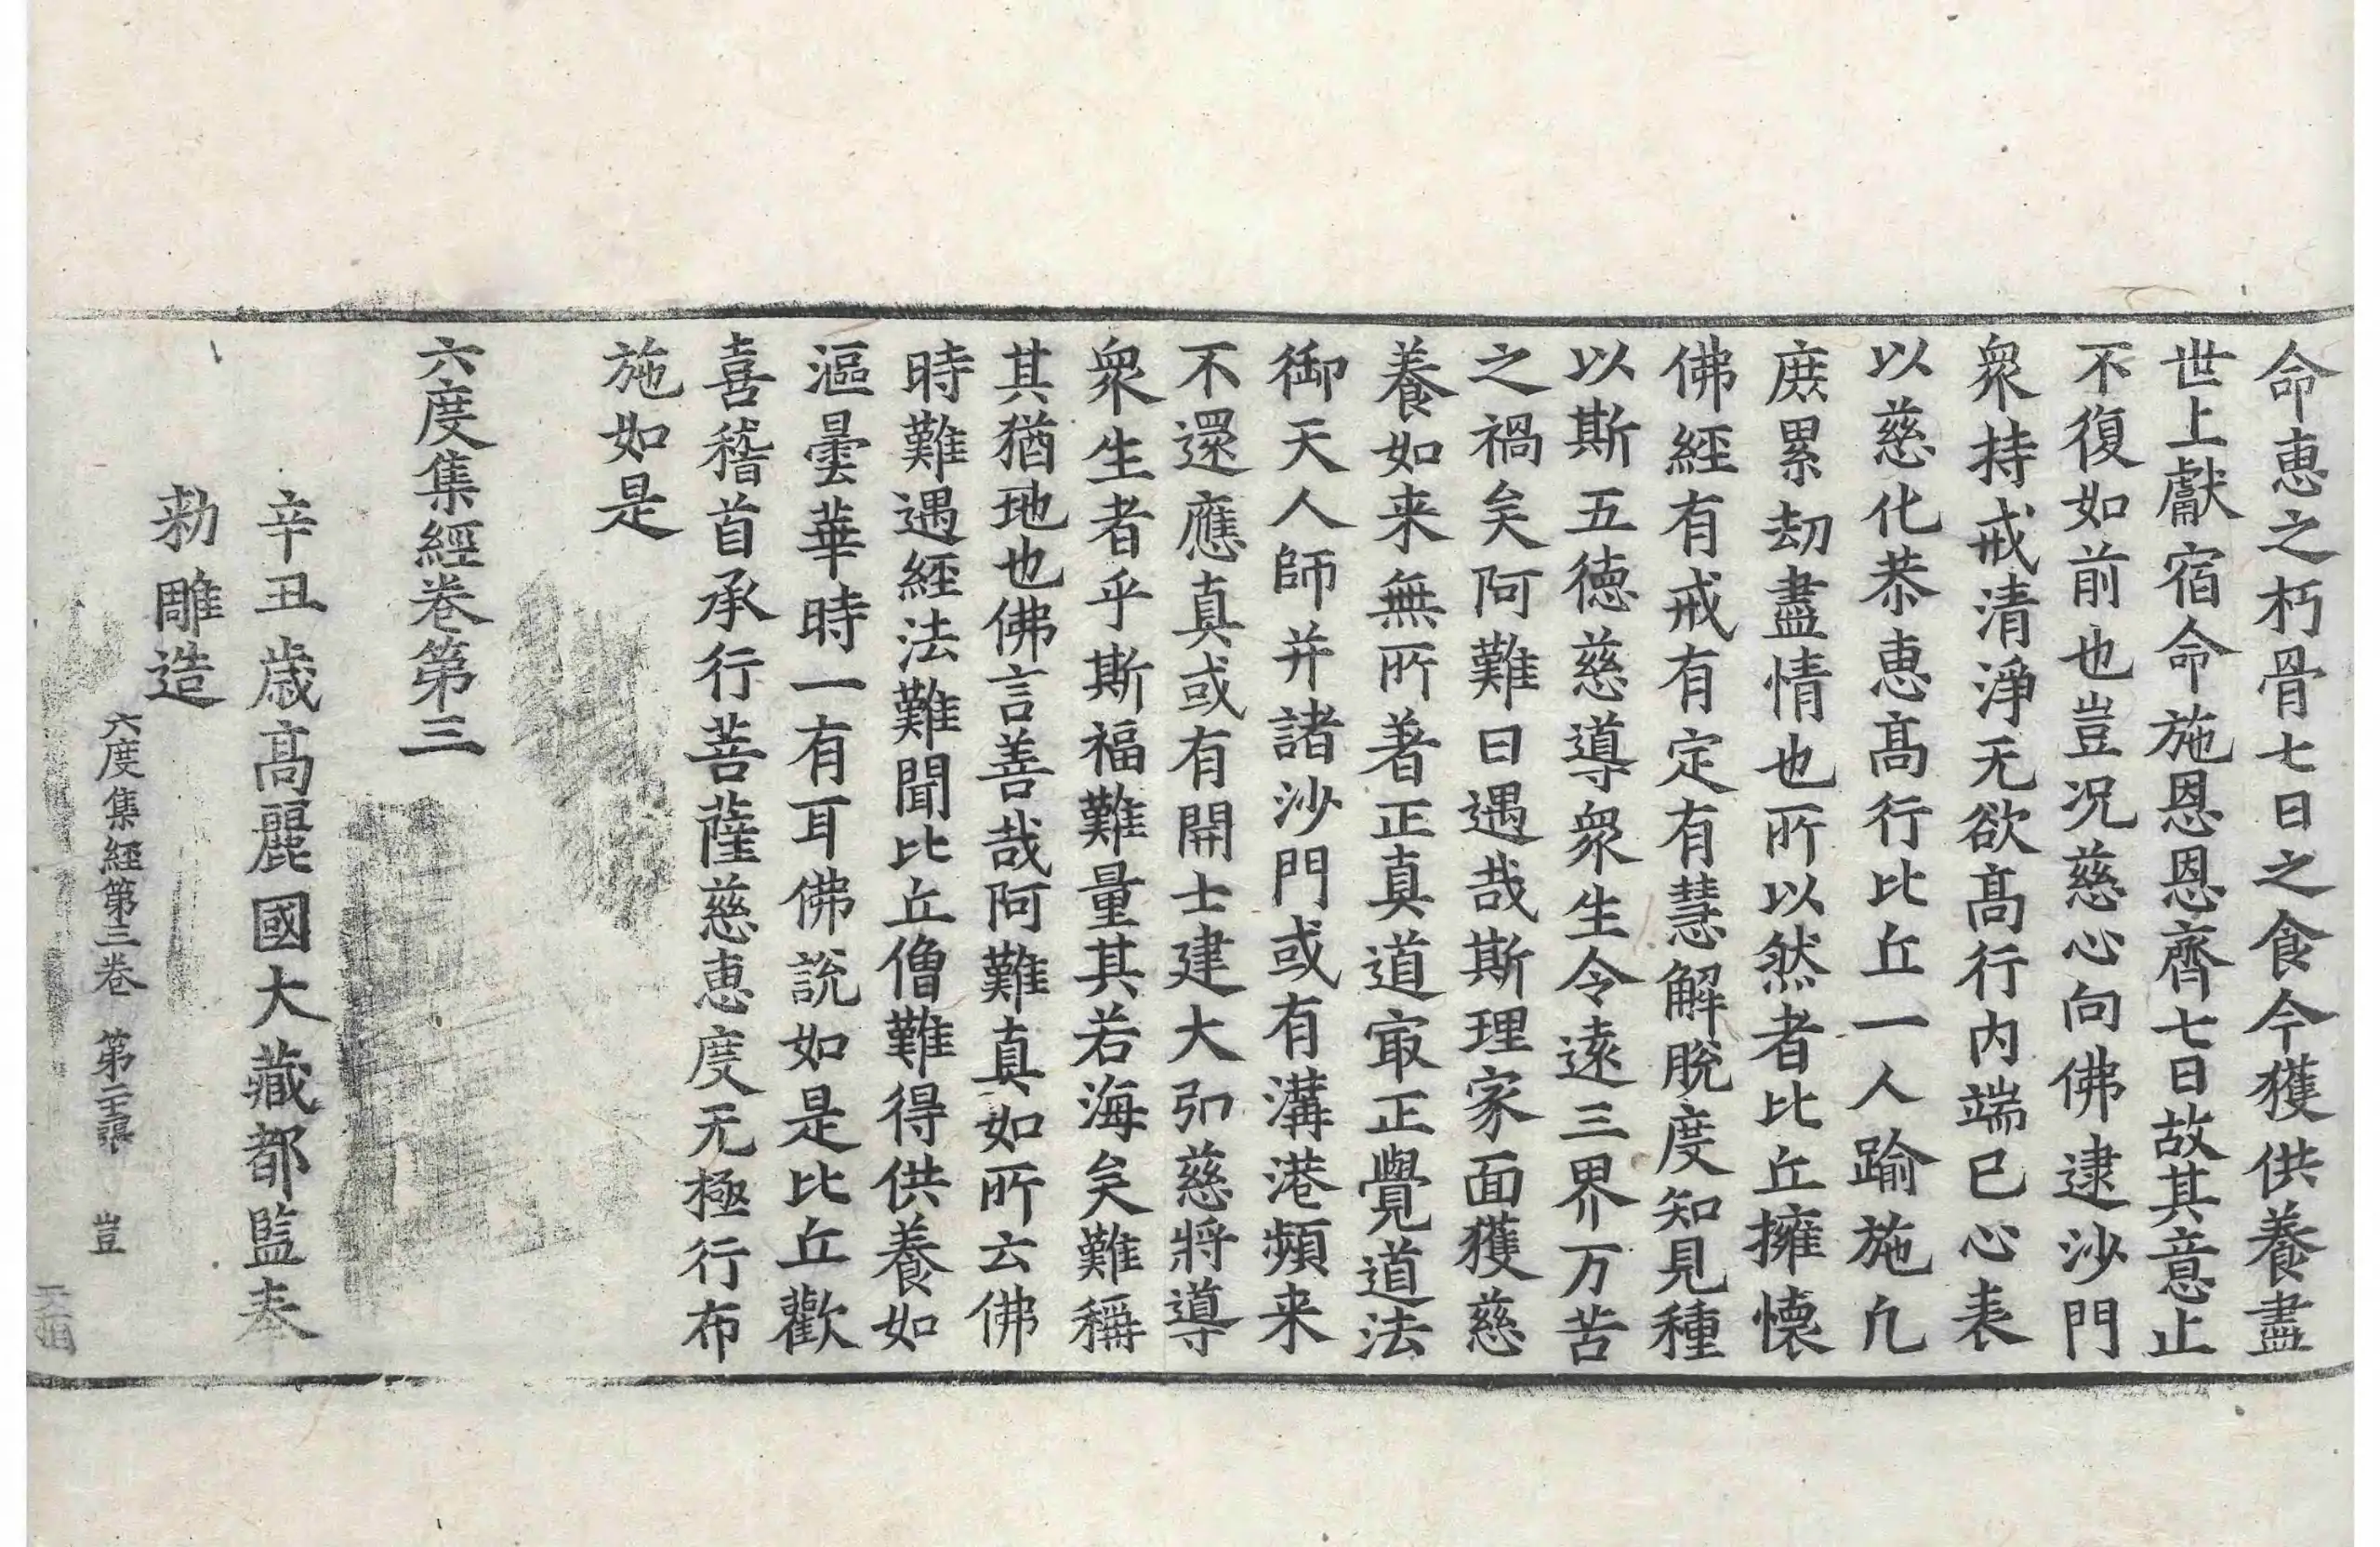 命惠之朽骨七日之食今獲供養盡
世上獻宿命施恩恩齊七日故其意止
不復如前也豈況慈心向佛逮沙門
衆持戒清淨无欲髙行内端已心表
以慈化恭惠髙行比丘一人踰施凢
庻累劫盡情也所以然者比丘擁懷
佛經有戒有定有慧解脫度知見種
以斯五德慈導衆生令遠三界万苦
之禍矣阿難曰遇哉斯理家面獲慈
養如来無所著正真道㝡正覺道法
御天人師并諸沙門或有溝港頻来
不還應真或有開士建大弘慈將導
衆生者乎斯福難量其若海矣難稱
其猶地也佛言善哉阿難真如所云佛
時難遇經法難聞比丘僧難得供養如
漚曇華時一有耳佛說如是比丘歡
喜稽首承行菩薩慈惠度无極行布
施如是
六度集經卷第三
辛丑歲高麗國大藏都監奉
勑雕造
六度集經第三卷 第二十張 豈